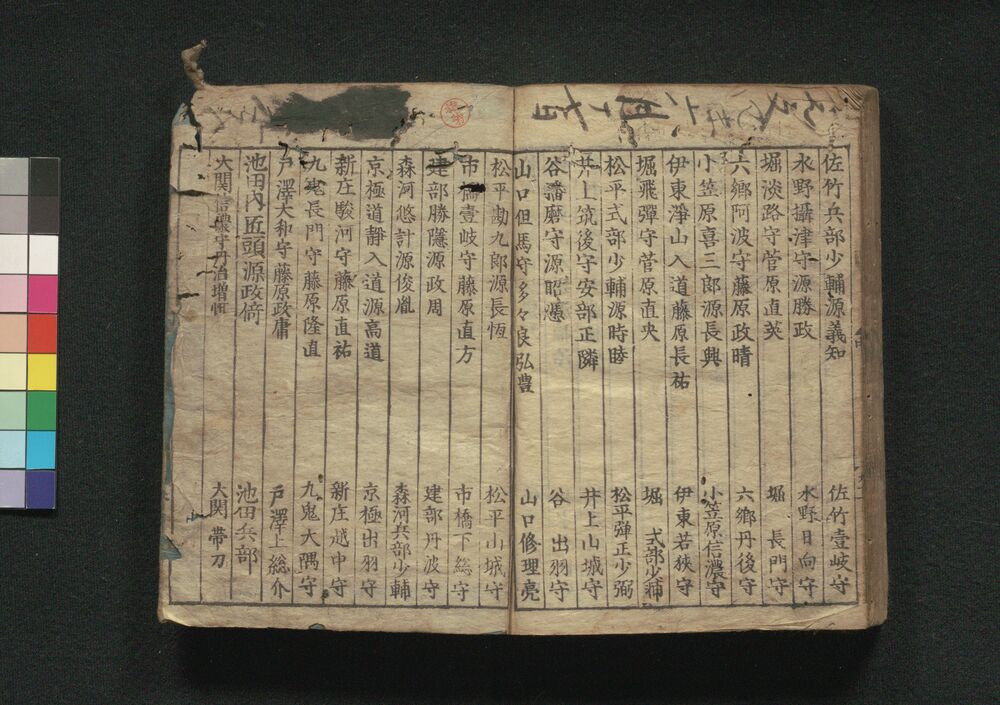 佐竹兵部少輔源義知 佐竹壹岐守
水野攝津守源勝政 水野日向守
堀淡路守菅原直英 堀 長門守
六鄉阿波守藤原政晴 六鄉丹後守
小笠原喜三郎源長興 小笠原信濃守
伊東淨山入道藤原長祐 伊東若狹守
堀飛彈守菅原直央 堀 式部少輔
松平式部少輔源時睦 松平彈正少弼
井上筑後守安部正隣 井上山城守
谷播磨守源昭憑 谷 出羽守
山口但馬守多々良弘豊 山口修理亮
松平勘九郎源長恆 松平山城守
市橋壹岐守藤原直方 市橋下総守
建部勝隱源政周 建部丹波守
森河悠計源俊胤 森河兵部少輔
京極道靜入道源高道 京極出羽守
新庄駿河守藤原直祐 新庄越中守
九鬼長門守藤原隆直 九鬼大隅守
戸澤大和守藤原政庸 戸澤上総介
池田内匠頭源政倚 池田兵部
大関信濃守丹治増恒 大関帯刀